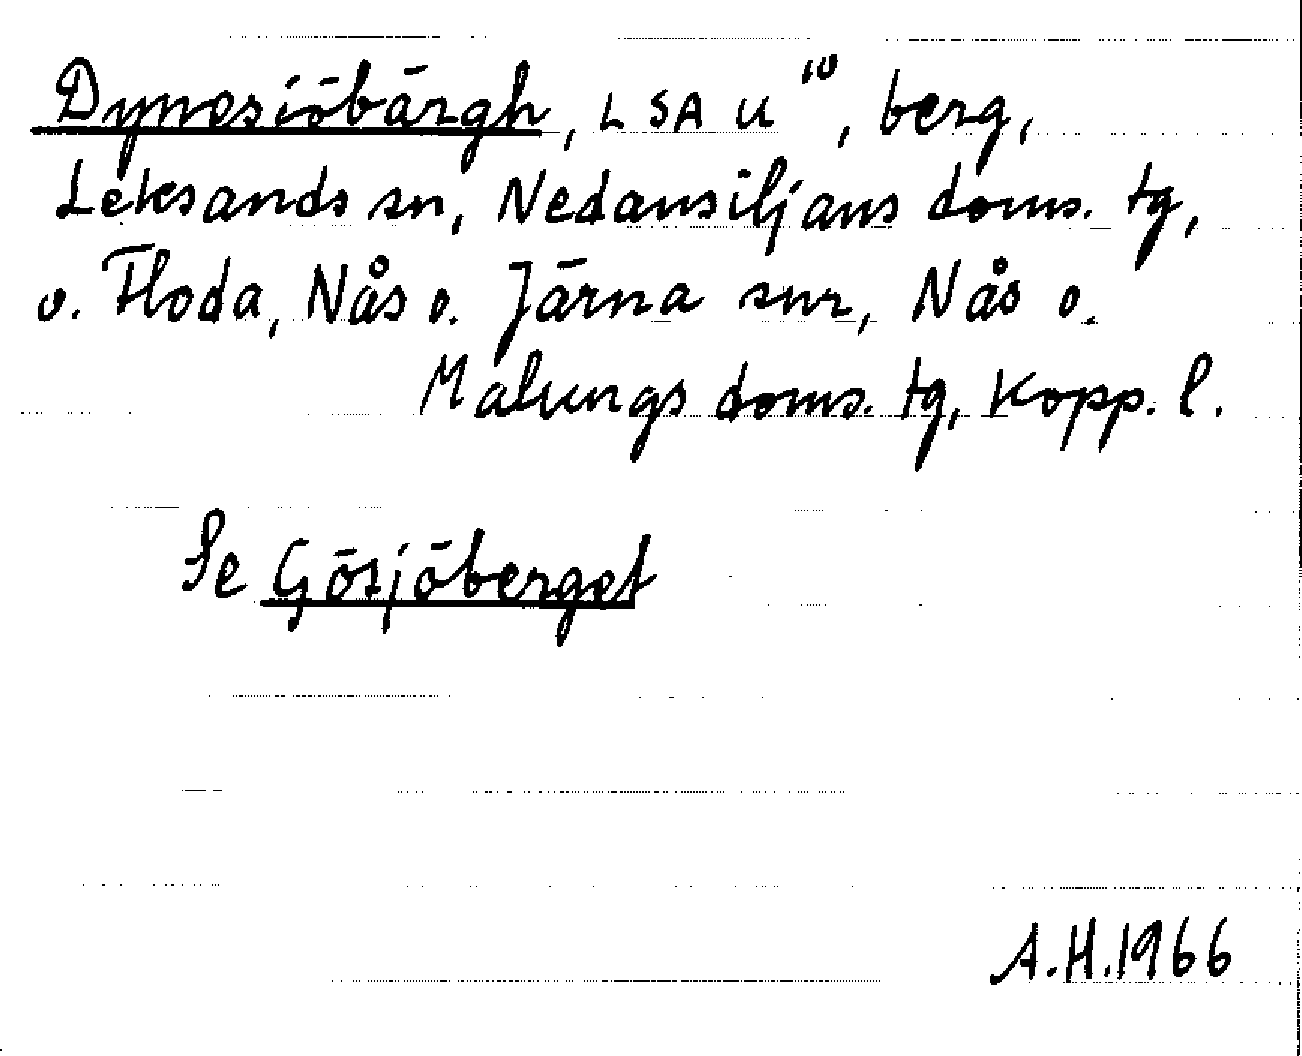 Dynesiöbärgh, LSA U¹⁰, berg,
Leksands sn, Nedansiljans doms. tg,
o. Floda, Nås o. Järna snr, Nås o.
Malungs doms. tg, Kopp. l.
Se Gösjöberget
A.H.1966